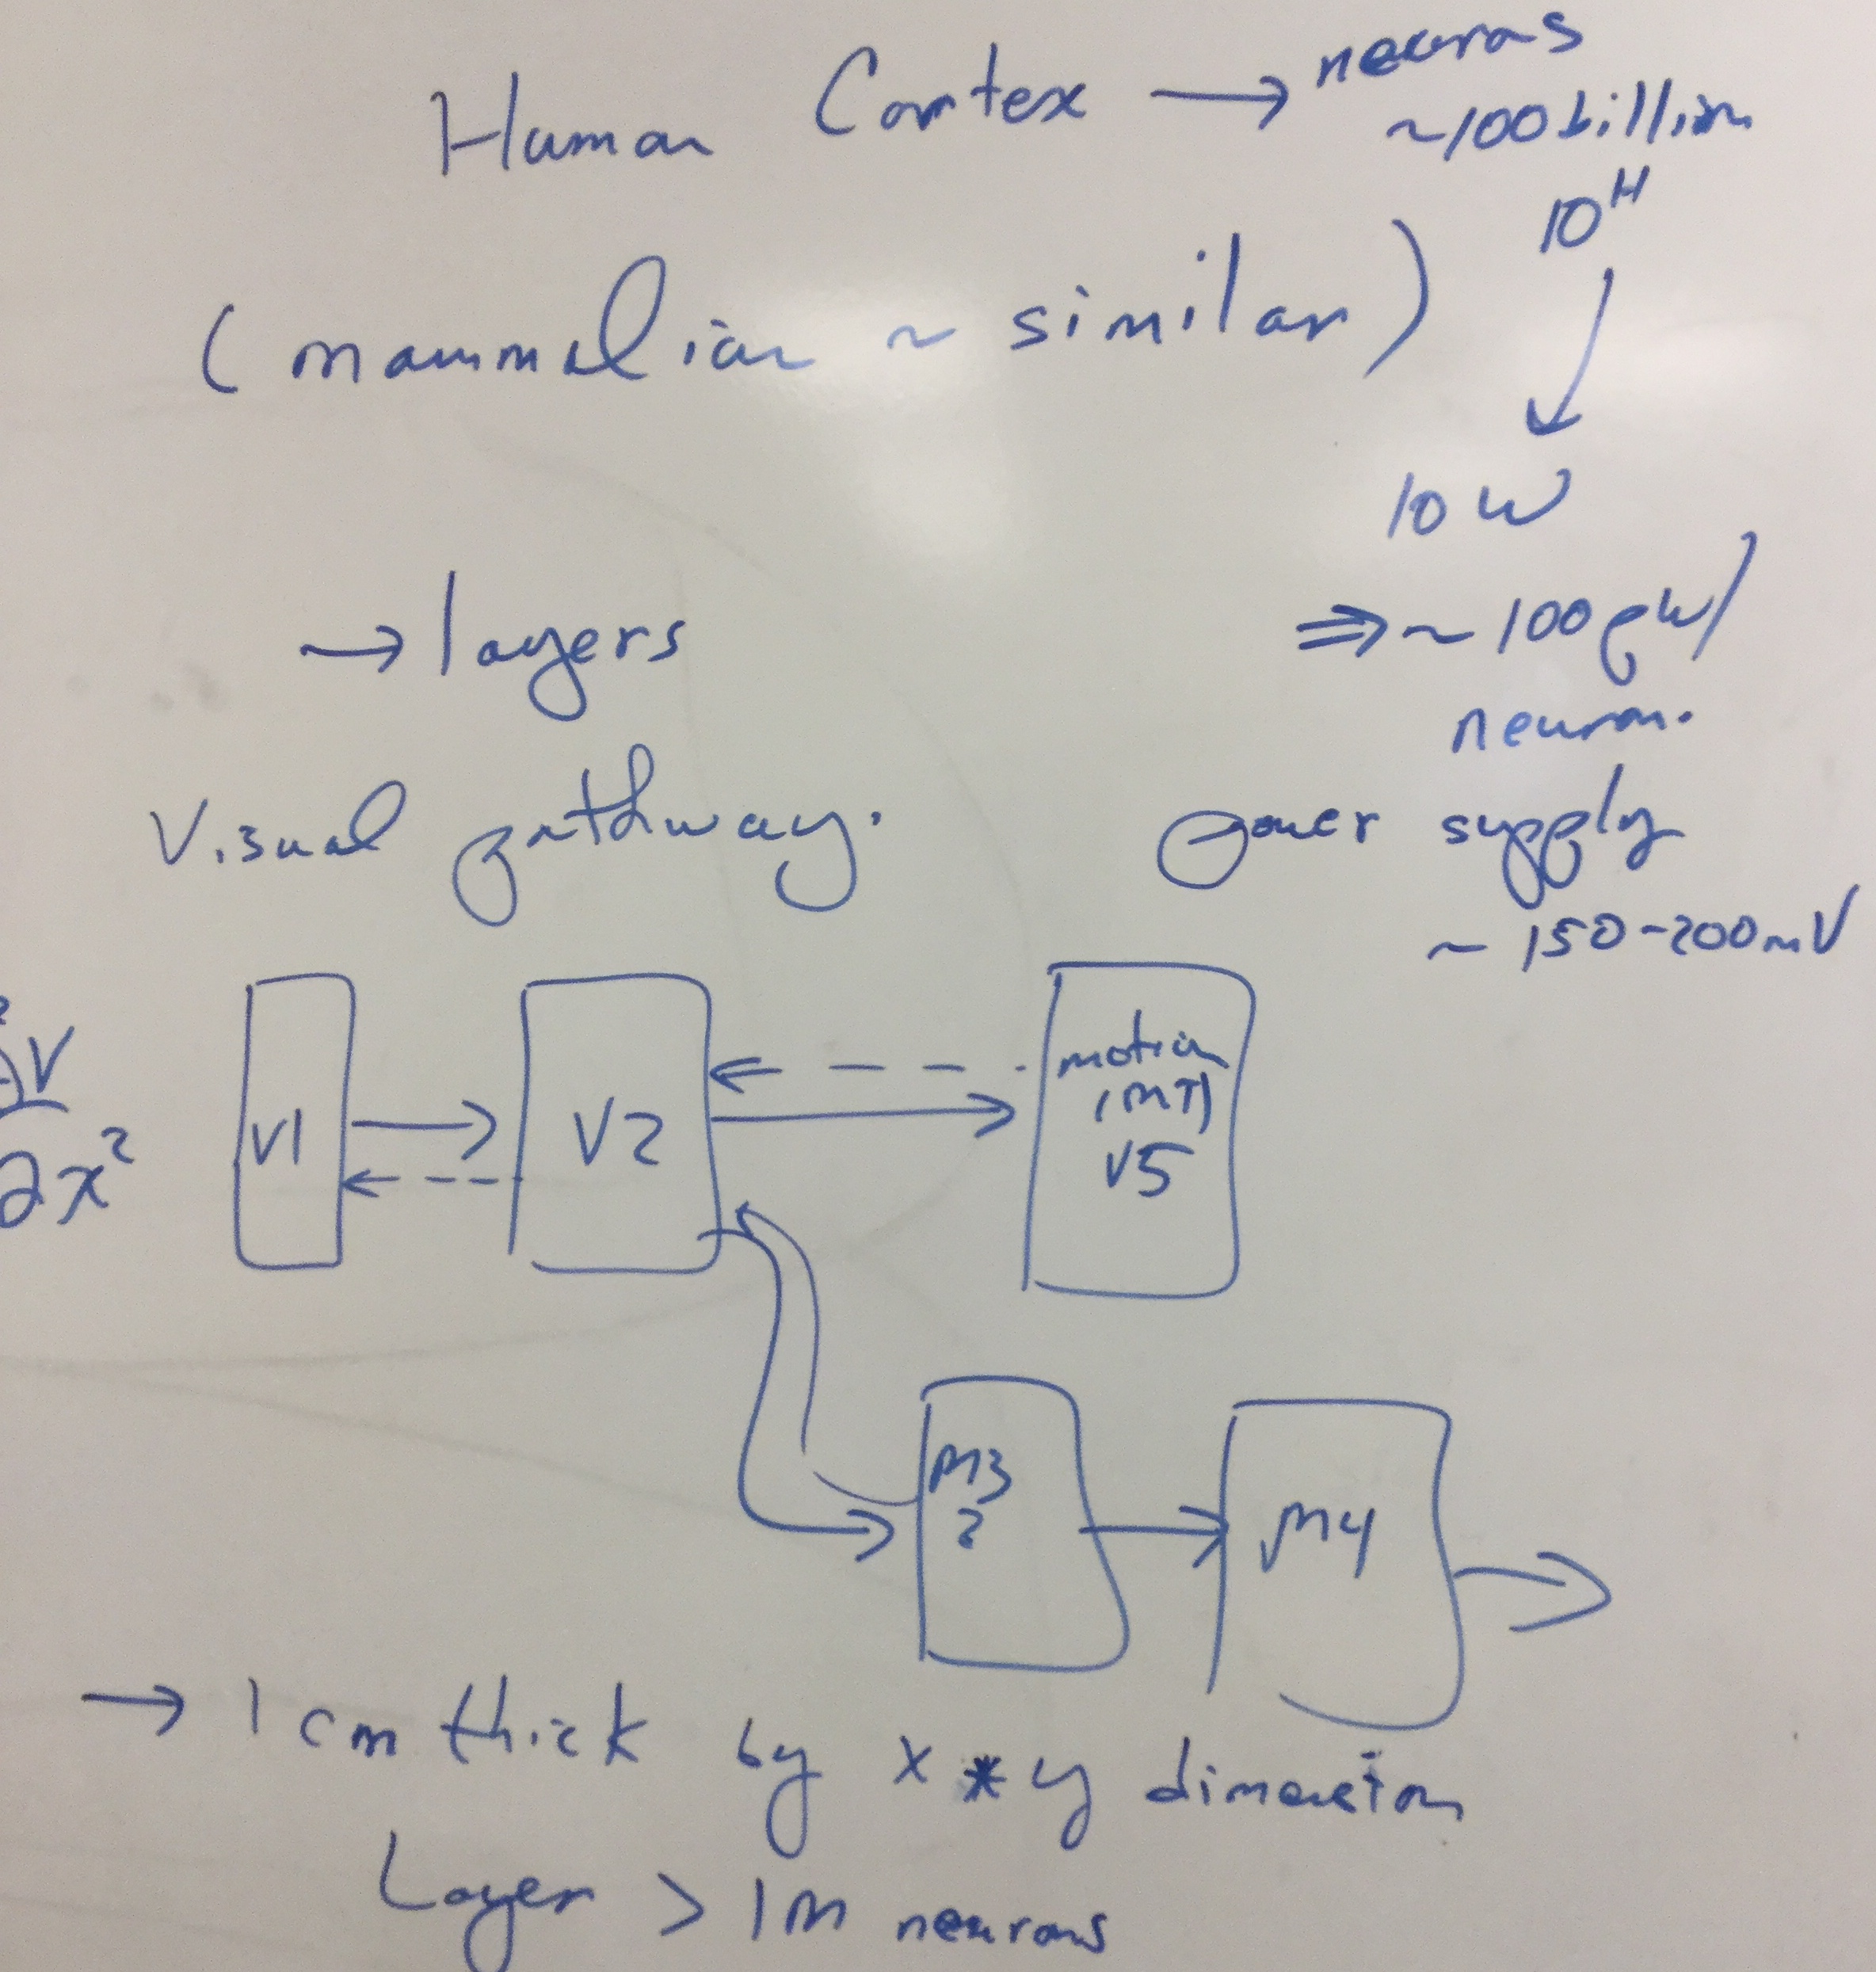 Human Cortex → neurons
~100 billion
10^11
(mammalian ~ similar)
10 W
→ layers
⇒ ~100pW/
neuron.
Visual pathway.
Power supply
~ 150-200mV
V
∂x²
V1
V2
motion
(MT)
V5
M3
?
M4
→ 1 cm thick by x * y dimension
Layer > 1M neurons